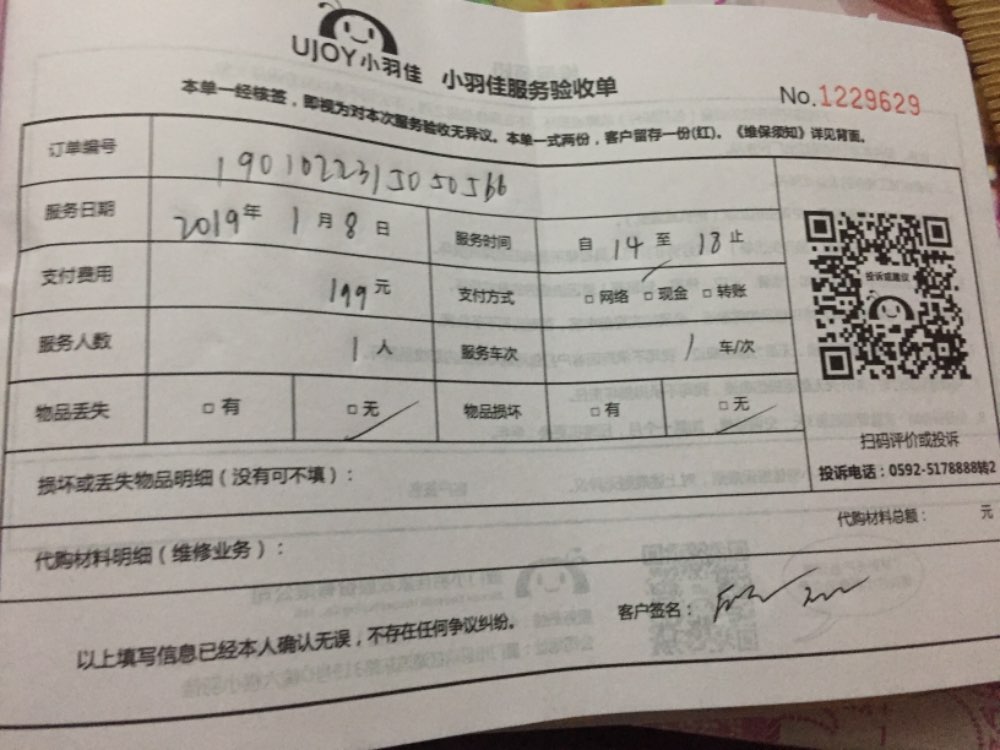 UJOY小羽佳 小羽佳服务验收单
No.1229629
本单一经核签，即视为对本次服务验收无异议。本单一式两份，客户留存一份(红)。《维保须知》详见背面。
订单编号 190102231505056​6
服务日期 2019年 1月 8日 服务时间 自 14 至 18 止
支付费用 199元 支付方式 □网络 □现金 □转账
投诉或建议
服务人数 1人 服务车次 1 车/次
物品丢失 □有 □无 物品损坏 □有 □无
扫码评价或投诉
投诉电话：0592-5178888转2
损坏或丢失物品明细（没有可不填）：
代购材料总额： 元
代购材料明细（维修业务）：
客户签名：
以上填写信息已经本人确认无误，不存在任何争议纠纷。